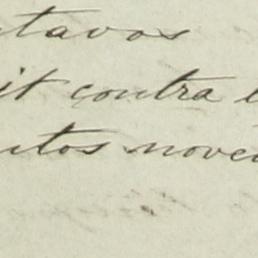 ntavos
it contra l
ntos novec